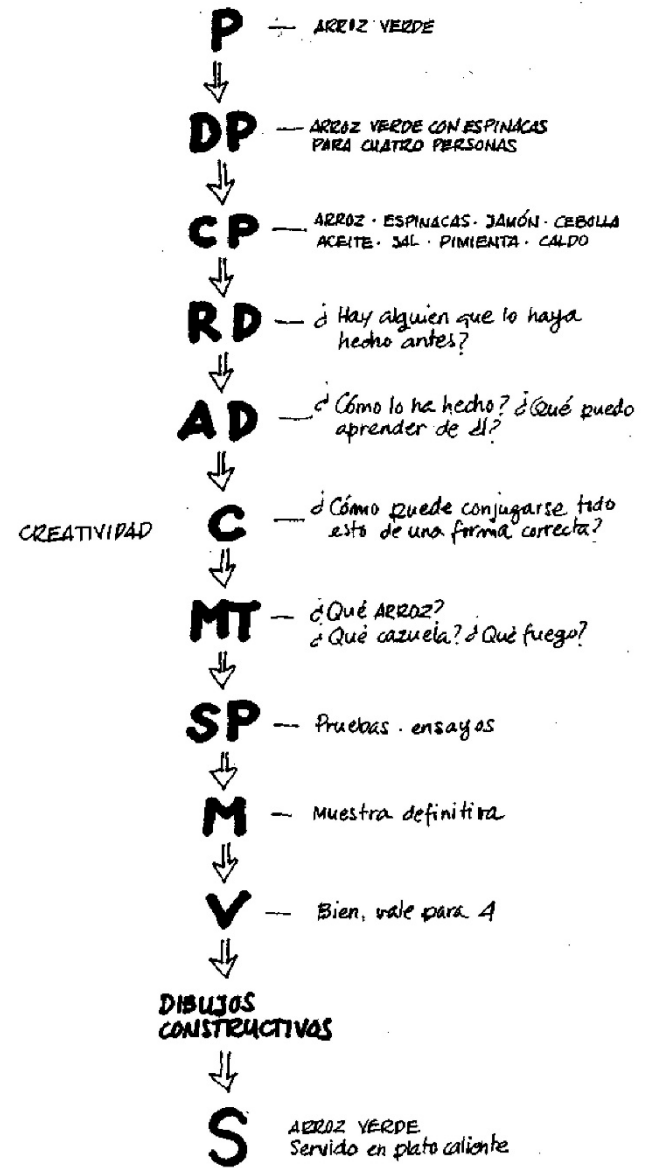 P — ARROZ VERDE
DP — ARROZ VERDE CON ESPINACAS
PARA CUATRO PERSONAS
CP — ARROZ · ESPINACAS · JAMÓN · CEBOLLA
ACEITE · SAL · PIMIENTA · CALDO
RD — ¿Hay alguien que lo haya
hecho antes?
AD — ¿Cómo lo ha hecho? ¿Qué puedo
aprender de él?
CREATIVIDAD C — ¿Cómo puede conjugarse todo
esto de una forma correcta?
MT — ¿Qué ARROZ?
¿Qué cazuela? ¿Qué fuego?
SP — Pruebas · ensayos
M — Muestra definitiva
V — Bien, vale para 4
DIBUJOS
CONSTRUCTIVOS
S ARROZ VERDE
Servido en plato caliente